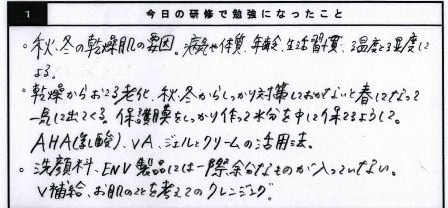 1 今日の研修で勉強になったこと
・秋、冬の乾燥肌の要因。病気や体質、年齢、生活習慣、温度と湿度に
よる。
・乾燥からおこる老化、秋、冬からしっかり対策しておかないと春になって
一気に出てくる。保護膜をしっかり作って水分を中に保てるようにして。
AHA(乳酸)、VA、ジェルとクリームの活用法。
・洗顔料、ENV製品には一際余分なものが入っていない。
V補給、お肌のことを考えてのクレンジング。